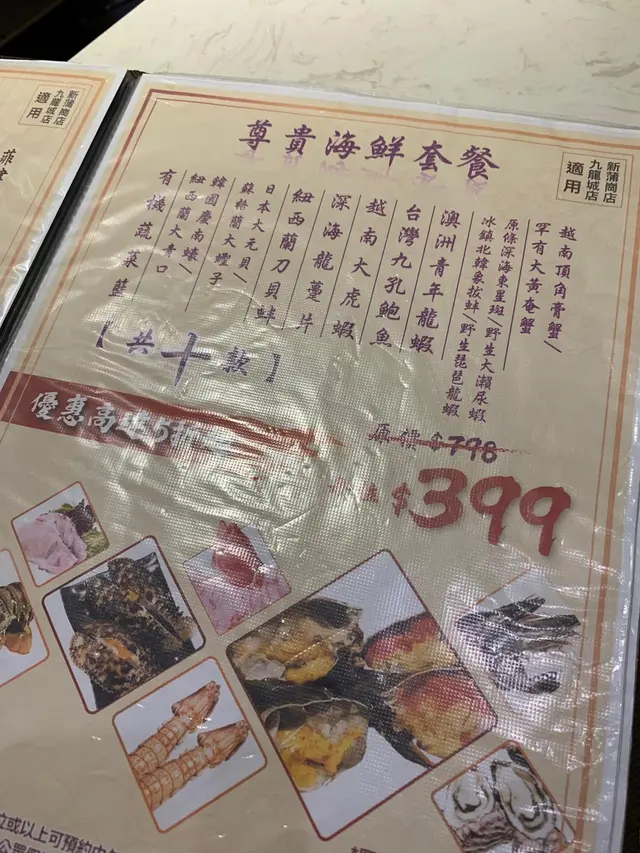 尊貴海鮮套餐
新蒲崗店
九龍城店
適用
越南頂角膏蟹/
罕有大黃奄蟹
原條深海東星斑/野生大瀨尿蝦
冰鎮北韓象拔蚌/野生琵琶龍蝦
澳洲青年龍蝦
台灣九孔鮑魚
越南大虎蝦
深海龍躉片
紐西蘭刀貝蚌
日本大元貝/
蘇格蘭大蟶子
韓國慶南蠔/
紐西蘭大青口
有機蔬菜籃
【共十款】
優惠高達5折
原價$798
$399
新蒲崗店
九龍城店
適用
立或以上可預約